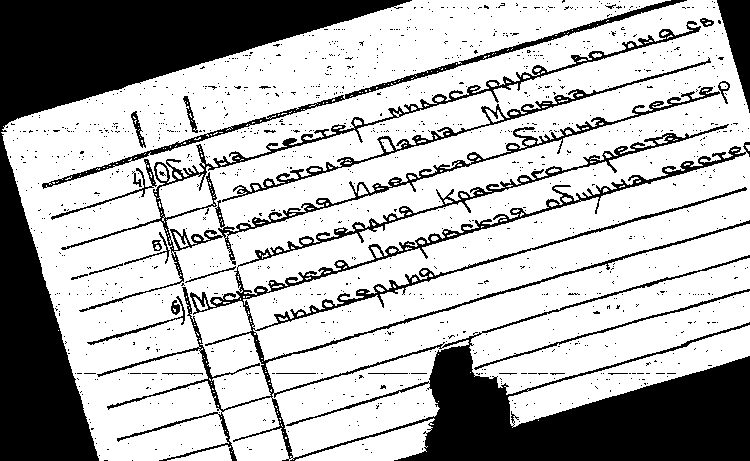 4) Община сестер милосердия во имя св.
апостола Павла. Москва.
5) Московская Иверская община сестер
милосердия Красного креста.
6) Московская Покровская община сестер
милосердия.